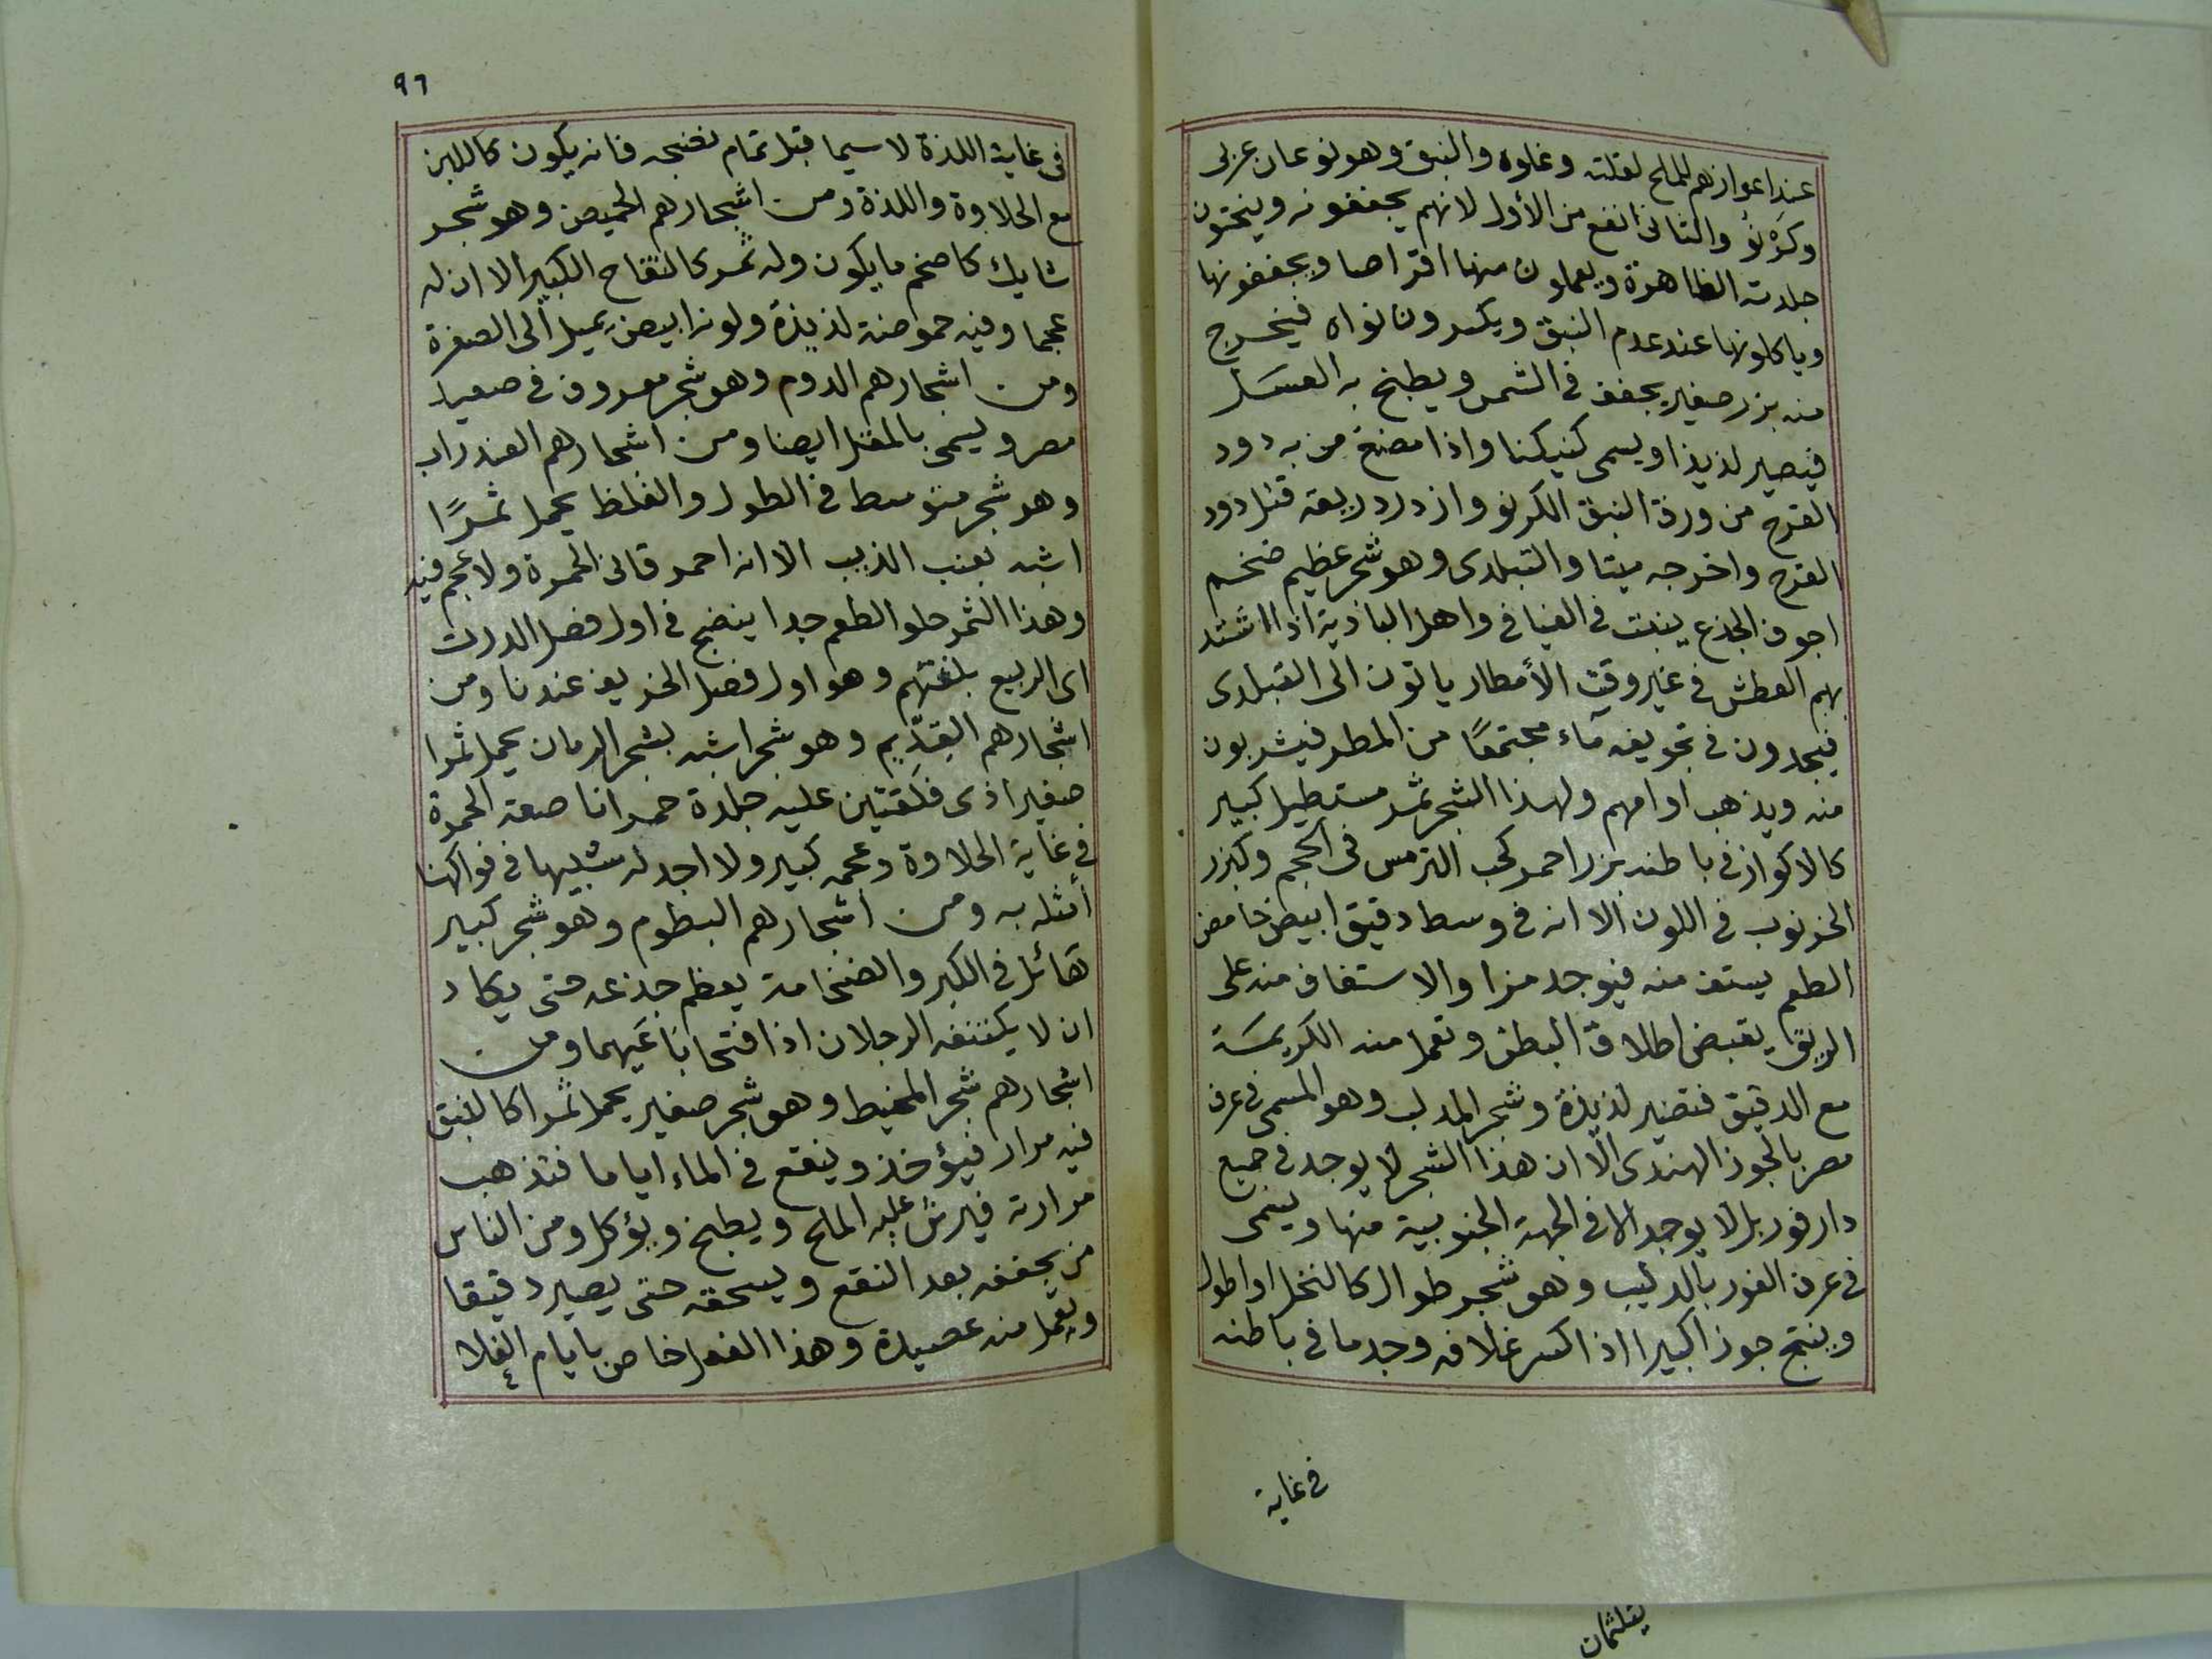 عند اعوازهم للملح لقلته وغلوه والنبق وهو نوعان عربى
وكرنو والثانى انفع من الأول لانهم يجففونه وينحتون
جلدته الظاهرة ويعملون منها اقراصا ويجففونها
وياكلونها عند عدم النبق ويكسرون نواه فيخرج
منه بزر صغير يجفف فى الشمس ويطبخ به العسل
فيصير لذيذا ويسمى كنيكنا واذا مضغ من به دود
القرح من ورق النبق الكرنو وازدرد ريقه قتل دود
القرح واخرجه ميتا والتبلدى وهو شجر عظيم ضخم
اجوف الجذع ينبت فى الفيافى واهل البادية اذا اشتد
بهم العطش فى غير وقت الأمطار ياتون الى التبلدى
فيجدون فى تجويفه مآء مجتمعًا من المطر فيشربون
منه ويذهب اوامهم ولهذا الشجر ثمر مستطيل كبير
كالاكواز فى باطنه بزر احمر كحب الترمس فى الحجم وكبزر
الخرنوب فى اللون الا انه فى وسط دقيق ابيض حامض
الطعم يستف منه فيوجد مزا والاستفاف منه على
الريق يقبض اطلاق البطن وتعمل منه الكريمة
مع الدقيق فتصير لذيذة وشجر المدلب وهو المسمى فى عرف
مصر بالجوز الهندى الا ان هذا الشجر لا يوجد فى جميع
دارفور بل لا يوجد الا فى الجهة الجنوبية منها ويسمى
فى عرف الفور بالدليب وهو شجر طوال كالنخل او اطول
وينتج جوزا كبيرا اذا كسر غلافه وجد ما فى باطنه
فى غاية
٩٦
فى غاية اللذة لا سيما قبل تمام نضجه فانه يكون كاللبن
مع الحلاوة واللذة ومن اشجارهم الحميض وهو شجر
شايك كاضخم ما يكون وله ثمر كالتفاح الكبير الا ان له
عجما وفيه حموضة لذيذة ولونه ابيض يميل الى الصفرة
ومن اشجارهم الدوم وهو شجر معروف فى صعيد
مصر ويسمى بالمقل ايضا ومن اشجارهم العندراب
وهو شجر متوسط فى الطول والغلظ يحمل ثمرًا
اشبه بعنب الذيب الا انه احمر قانى الحمرة ولا عجم فيه
وهذا الثمر حلو الطعم جدا ينضج فى اول فصل الدرت
اى الربيع بلغتهم وهو اول فصل الخريف عندنا ومن
اشجارهم القديم وهو شجر اشبه بشجر الرمان يحمل ثمرا
صغيرا ذى فلقتين عليه جلدة حمرا ناصعة الحمرة
فى غاية الحلاوة وعجمه كبير ولا اجد له شبيها فى فواكهنا
أمثله به ومن اشجارهم البطوم وهو شجر كبير
هائل فى الكبر والضخامة يعظم جذعه حتى يكاد
ان لا يكتنفه الرجلان اذا فتحا باعيهما ومن
اشجارهم شجر المخيط وهو شجر صغير يحمل ثمرا كالنبق
فيه مرار فيؤخذ وينقع فى الماء اياما فتذهب
مرارته فيرش عليه الملح ويطبخ ويؤكل ومن الناس
من يجففه بعد النقع ويسحقه حتى يصير دقيقا
ويعمل منه عصيدة وهذا الفعل خاص بايام الغلا